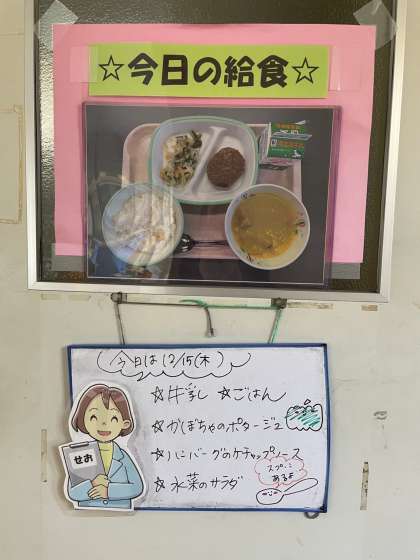 ☆今日の給食☆
今日は 12/15(木)
☆牛乳 ☆ごはん
☆かぼちゃのポタージュ
☆ハンバーグのケチャップソース
☆水菜のサラダ
スプーン
あるよ
せお